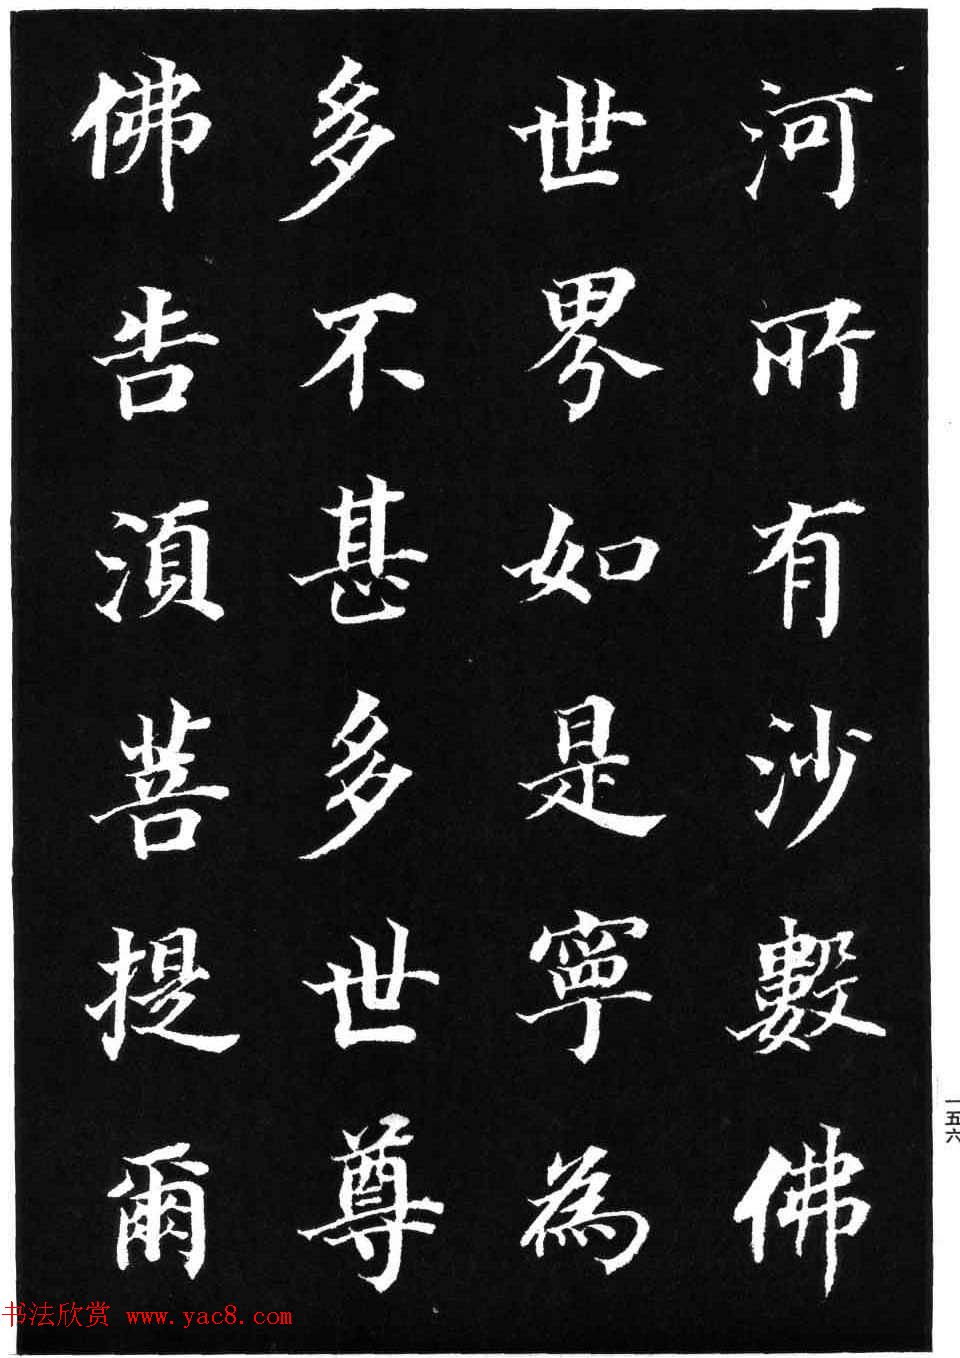 河所有沙數佛
世界如是寧為
多不甚多世尊
佛告須菩提爾
一五六
书法欣赏 www.yac8.com